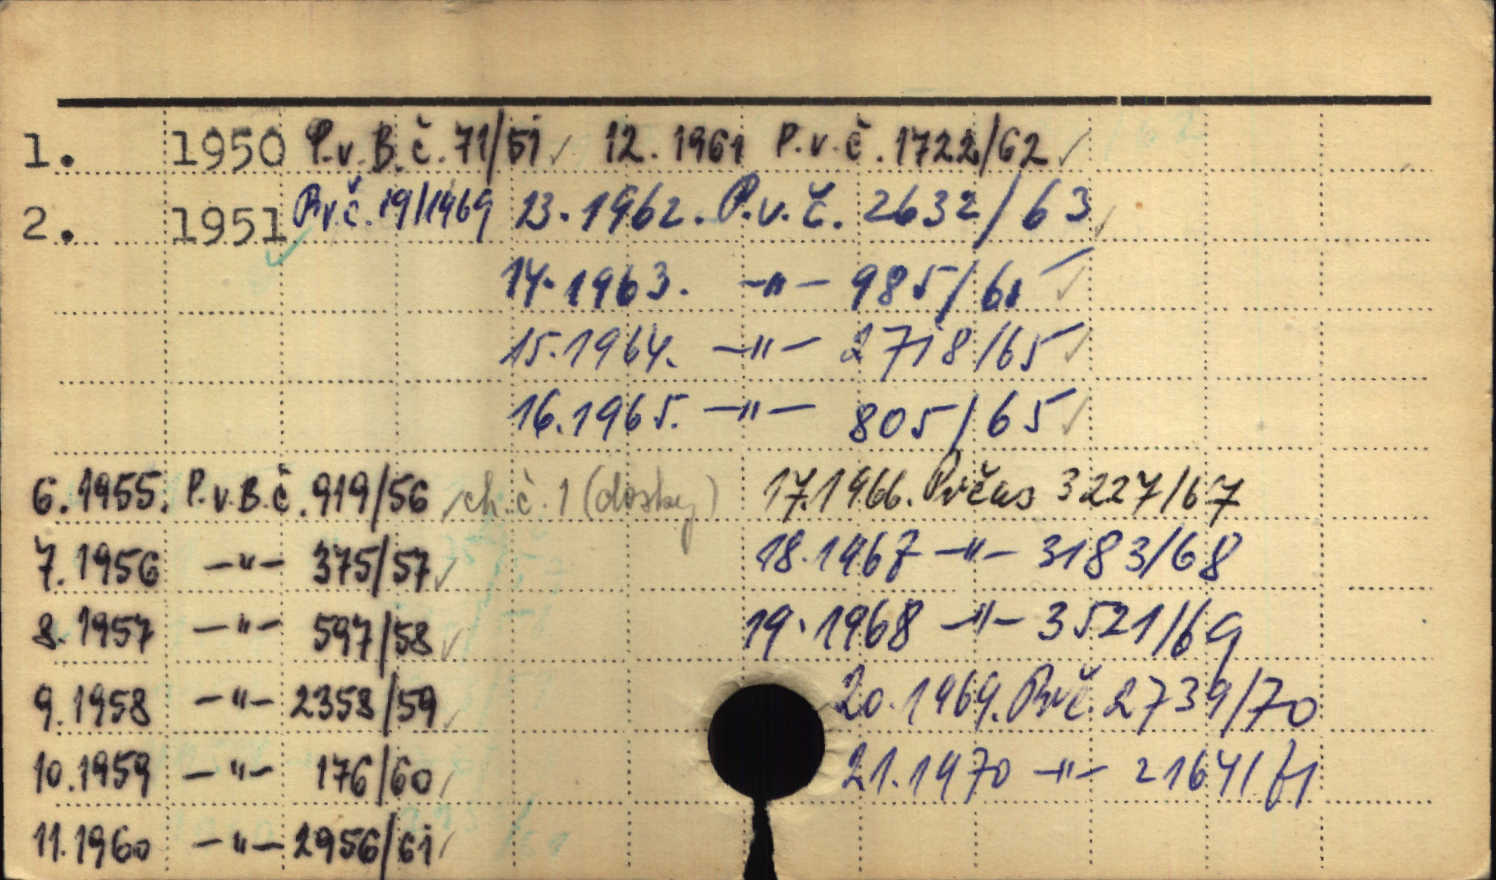 1. 1950 P.v.B.č. 71/51 ✓ 12. 1961 P.v.č. 1722/62 ✓
2. 1951 P.v.č. 19/1969 13. 1962. P.v.č. 2632/63 ✓
14. 1963. -"- 985/65 ✓
15. 1964. -"- 2718/65 ✓
16. 1965. -"- 805/65 ✓
6. 1955. P.v.B.č. 919/56 ✓ ch.č. 1 (dosky) 17. 1966. Pvčas 3227/67
7. 1956 -"- 375/57 ✓ 18. 1967 -"- 3183/68
8. 1957 -"- 597/58 ✓ 19. 1968 -"- 3521/69
9. 1958 -"- 2358/59 ✓ 20. 1969. Pvč. 2739/70
10. 1959 -"- 176/60 ✓ 21. 1970 -"- 2164/71
11. 1960 -"- 2956/61 ✓